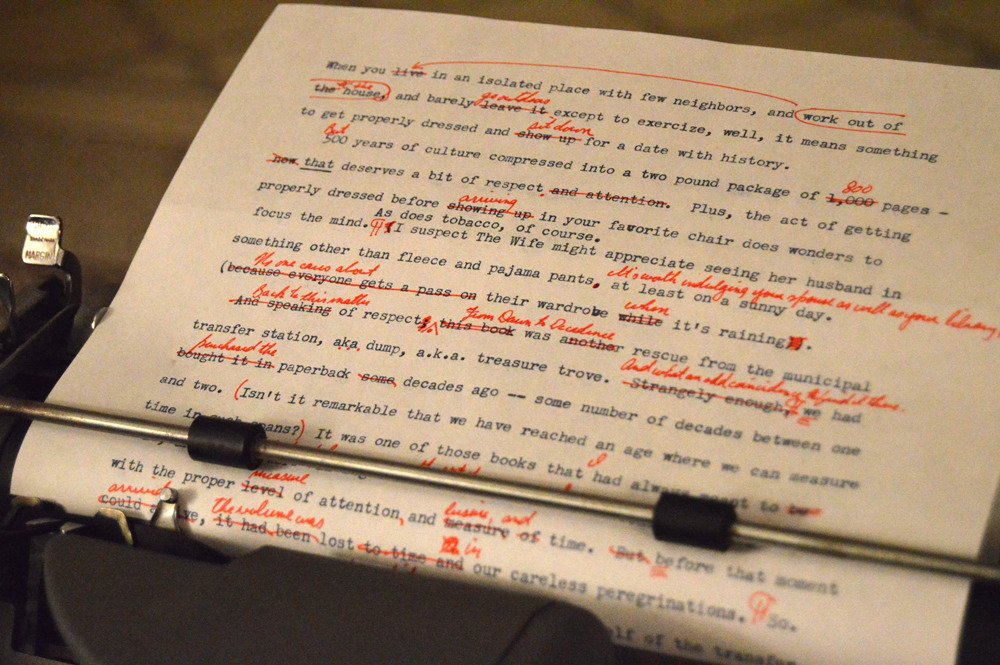 When you live in an isolated place with few neighbors, and work out of
to the
the house, and barely leave it except to exercize, well, it means something
go outdoors
to get properly dressed and show up for a date with history.
sit down
But
500 years of culture compressed into a two pound package of 1,000 pages -
800
now that deserves a bit of respect and attention. Plus, the act of getting
properly dressed before showing up in your favorite chair does wonders to
arriving
As does tobacco, of course.
focus the mind. I suspect The Wife might appreciate seeing her husband in
something other than fleece and pajama pants, at least on a sunny day.
It's worth indulging your spouse as well as your library
No one cares about
(because everyone gets a pass on their wardrobe while it's raining).
when
Back to this matter
And speaking of respect, this book was another rescue from the municipal
From Dawn to Decadence
transfer station, aka dump, a.k.a. treasure trove. Strangely enough, we had
And what an odd coincidence to find it there.
purchased the
bought it in paperback some decades ago -- some number of decades between one
and two. (Isn't it remarkable that we have reached an age where we can measure
time in such spans?) It was one of those books that had always meant to be
I
with the proper level of attention, and measure of time. But before that moment
measure
leisure, and
arrived
could
The volume was
it had been lost to time and our careless peregrinations. So.
in
of the